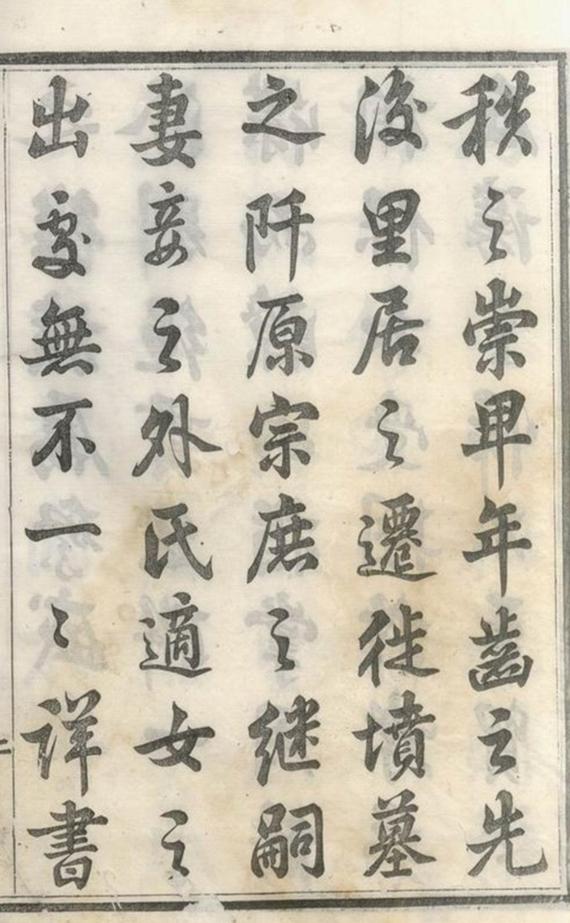 秩之崇卑年齒之先
後里居之遷徙墳墓
之阡原宗庶之継嗣
妻妾之外氏適女之
出處無不一〻詳書